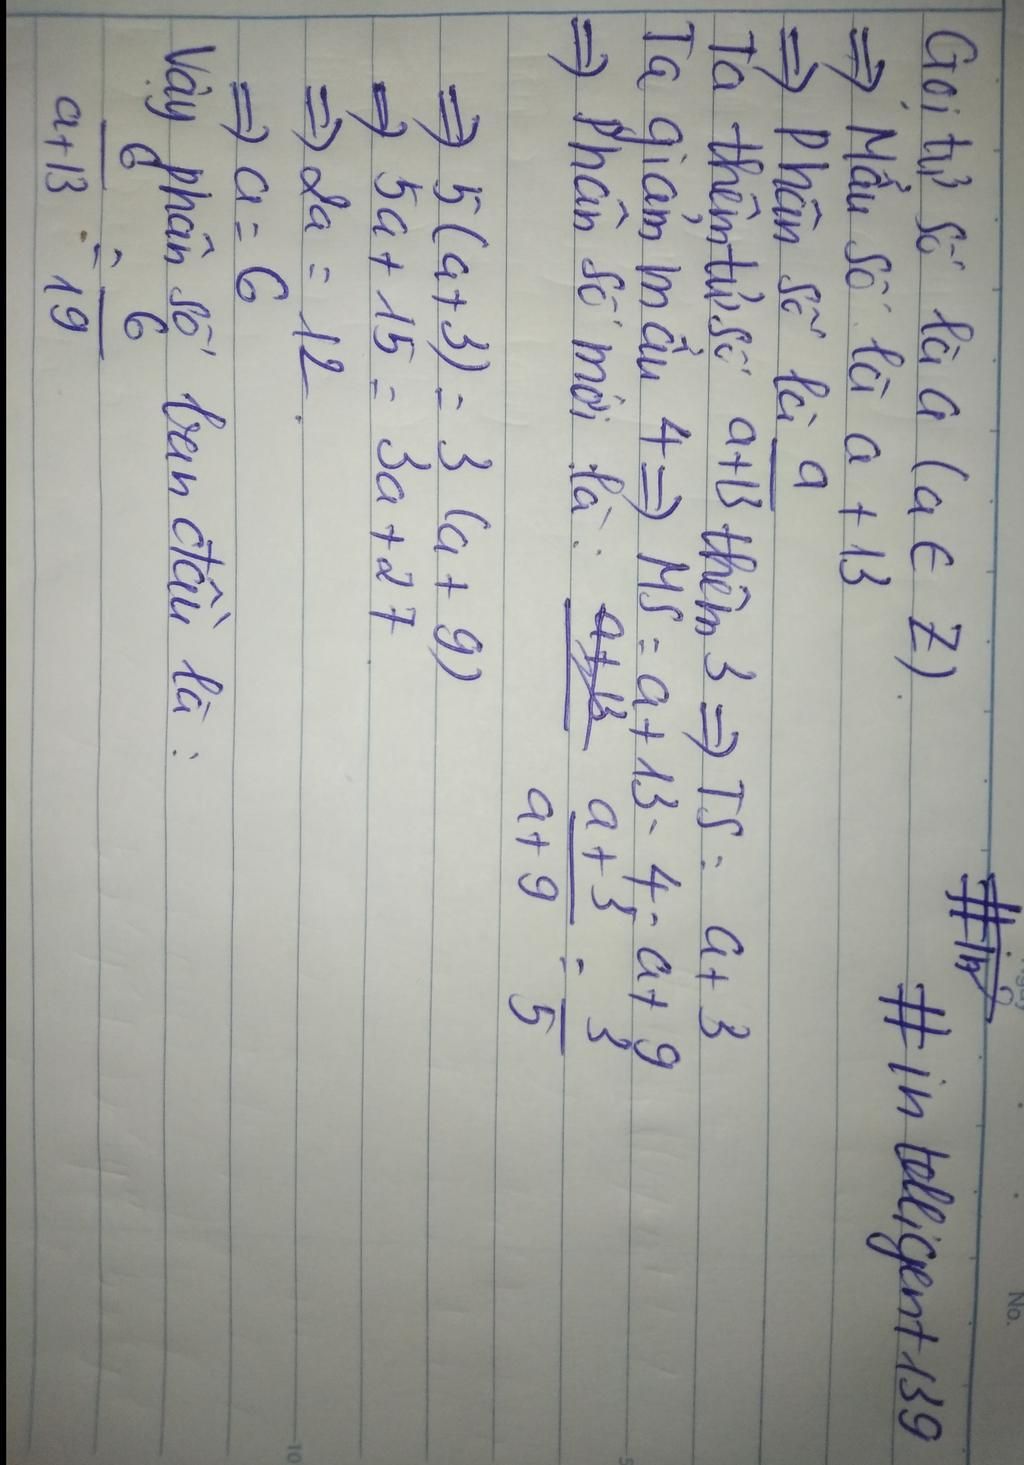 No.
#in
#intelligent139
Gọi tử số là a (a ∈ Z)
⇒ Mẫu số là a + 13
⇒ Phân số là a/a+13
Ta thêm tử số thêm 3 ⇒ TS = a + 3
Ta giảm mẫu 4 ⇒ MS = a + 13 - 4 = a + 9
⇒ Phân số mới là: a+13 a+3/a+9 = 3/5
⇒ 5(a+3) = 3(a+9)
⇒ 5a + 15 = 3a + 27
⇒ 2a = 12.
⇒ a = 6
Vậy phân số ban đầu là:
6/a+13 = 6/19
5
10